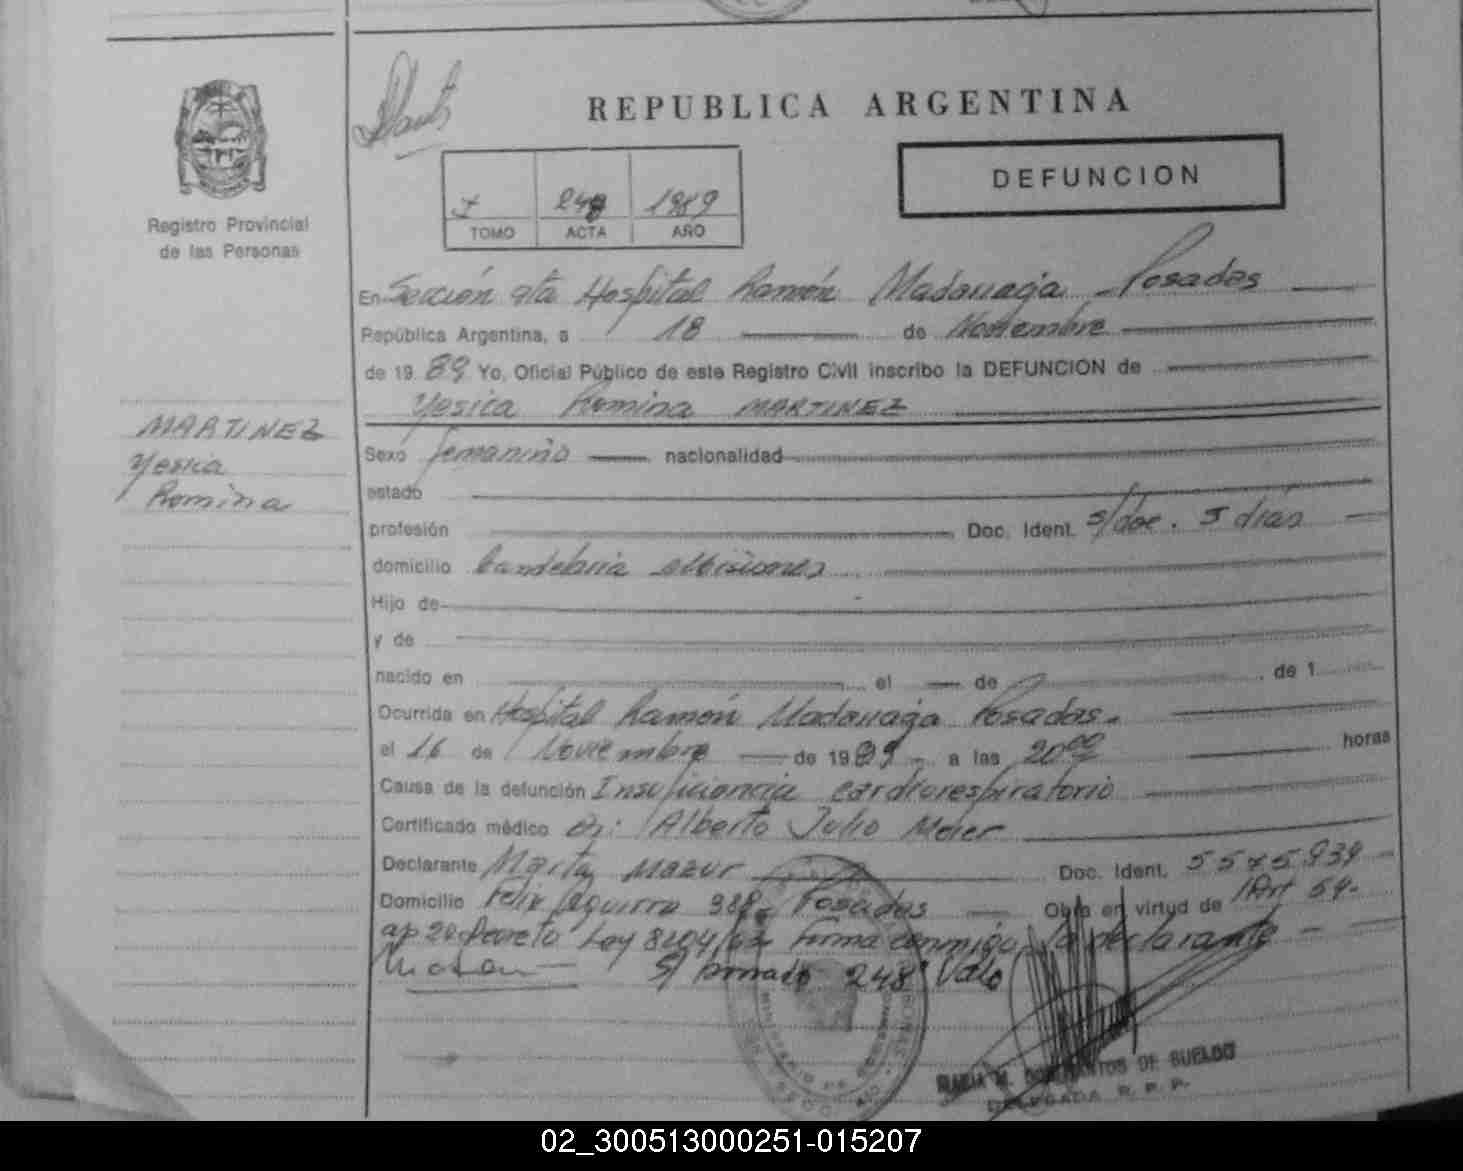 REPUBLICA ARGENTINA
DEFUNCION
I 248 1989
TOMO ACTA AÑO
Registro Provincial
de las Personas
En Sección 4ta Hospital Ramón Madariaga Posadas
República Argentina, a 18 de Noviembre
de 19 89 Yo, Oficial Público de este Registro Civil inscribo la DEFUNCION de
Yesica Romina MARTINEZ
MARTINEZ
Yesica
Romina
Sexo femenino nacionalidad
estado
profesión Doc. Ident. s/doc. 5 dias
domicilio Candelaria Misiones
Hijo de
y de
nacido en el de de 1
Ocurrida en Hospital Ramón Madariaga Posadas.
el 16 de Noviembre de 1989 a las 20⁰⁰ horas
Causa de la defunción Insuficiencia cardiorespiratorio
Certificado médico Dr: Alberto Julio Meier
Declarante Marta Mazur Doc. Ident. 5575939
Domicilio Felix Aguirre 388 Posadas Obra en virtud de Art 54-
ap 2do Decreto Ley 8204/63 Firma conmigo la declarante
S/ borrado 248 Vale
MARIA M. DE SUELDO
DELEGADA R. P. P.
02_300513000251-015207